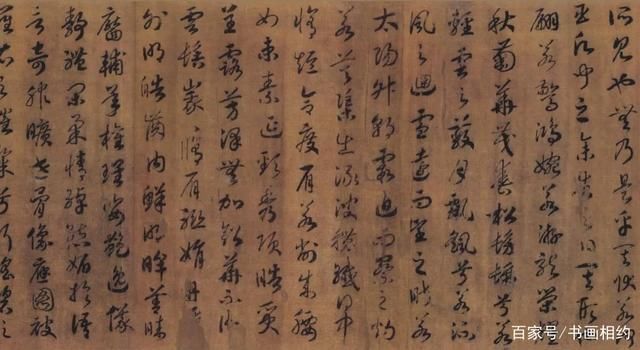 所見也無乃是乎其狀若
臣願聞之余告之曰其形
翩若驚鴻婉若游龍榮
秋菊華茂春松髣髴兮若
輕雲之蔽月飄颻兮若流
風之迴雪遠而望之皎若
太陽升朝霞迫而察之灼
若芙蕖出淥波穠纖得中
脩短合度肩若削成腰
如束素延頸秀項皓質
呈露芳澤無加鉛華不御
雲髻峨峨脩眉聯娟丹唇
外朗皓齒內鮮明眸善睞
靨輔承權瓌姿艷逸儀
靜體閑柔情綽態媚於語
言奇服曠世骨像應圖被
羅衣之璀粲兮珥瑤碧之
百家号/书画相约